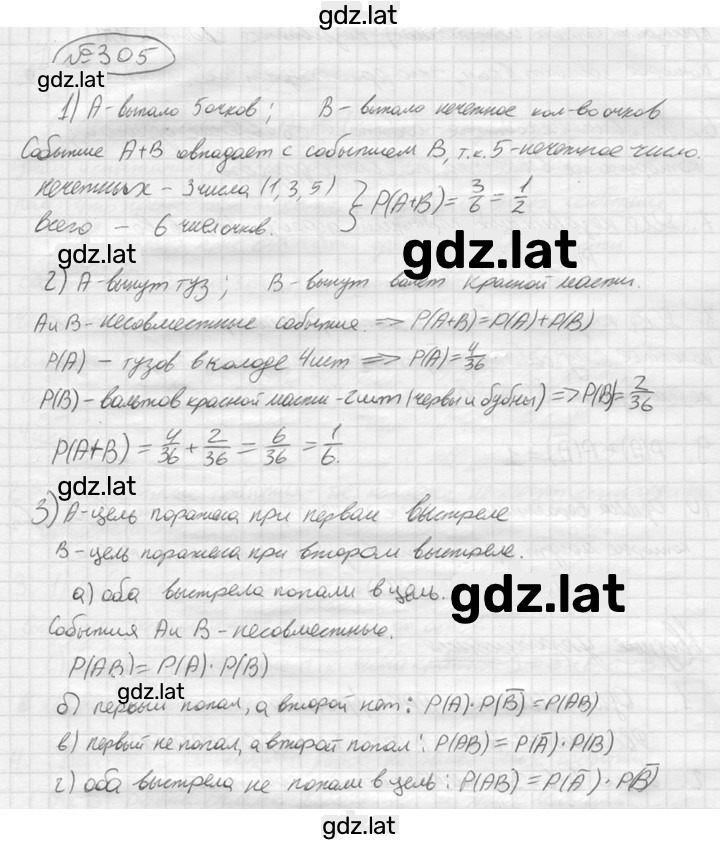 gdz.lat
№305
gdz.lat
1) A-выпало 5очков; B-выпало нечетное кол-во очков
Событие A+B совпадает с событием B, т.к. 5-нечетное число.
нечетных - 3числа (1,3,5) } P(A+B)= 3/6 = 1/2
Всего - 6 чисел очков.
gdz.lat
gdz.lat
2) A-вынут туз; B-вынут валет красной масти.
A и B-несовместные события. => P(A+B)=P(A)+P(B)
P(A) - тузов в колоде 4шт => P(A)=4/36
P(B)-вальтов красной масти -2шт (червы и бубны) => P(B)=2/36
P(A+B) = 4/36 + 2/36 = 6/36 = 1/6.
gdz.lat
3) A-цель поражена при первом выстреле
B-цель поражена при втором выстреле.
а) оба выстрела попали в цель.
gdz.lat
События A и B-несовместные.
P(AB)=P(A)·P(B)
gdz.lat
б) первый попал, а второй нет: P(A)·P(B̅)=P(AB)
в) первый не попал, а второй попал: P(AB)=P(A̅)·P(B)
г) оба выстрела не попали в цель: P(AB)=P(A̅)·P(B̅)
gdz.lat